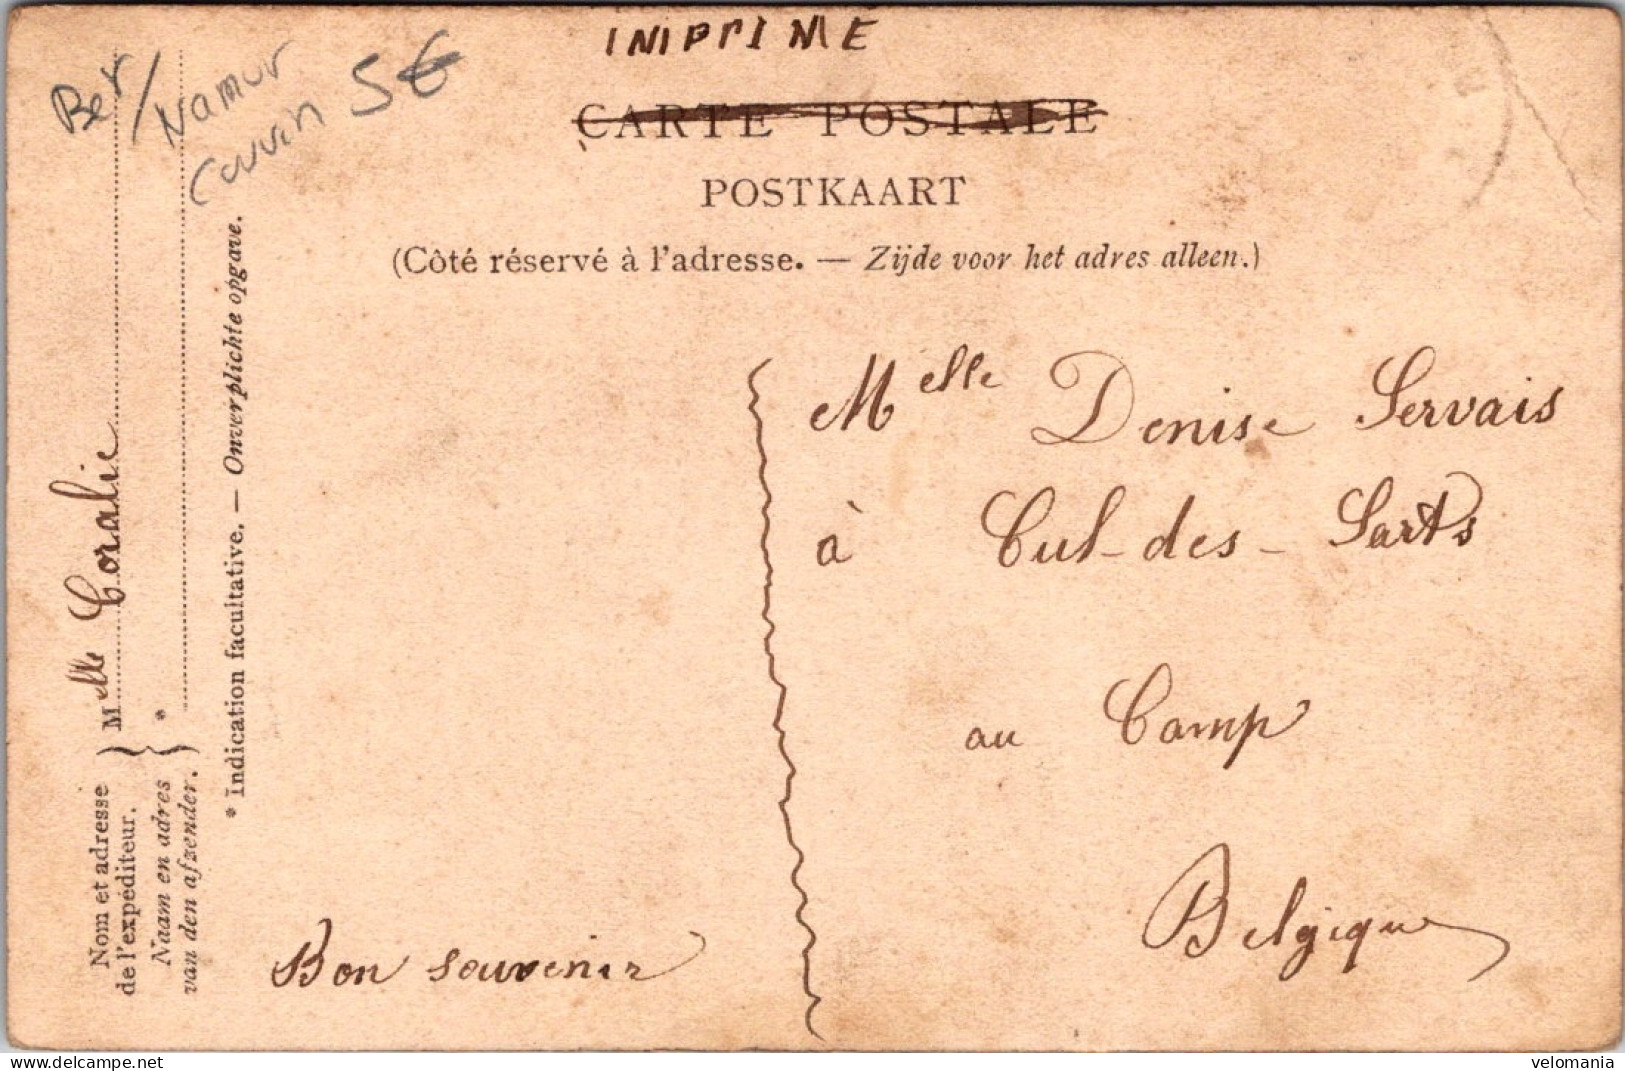 INIPRIME
CARTE POSTALE
POSTKAART
(Côté réservé à l'adresse. — Zijde voor het adres alleen.)
Ber / Namur
Couvin 5€
Melle Denise Servais
à Cul-des-Sarts
au Camp
Belgique
Bon souvenir
Nom et adresse
de l'expéditeur.
Naam en adres
van den afzender.
Melle Coralie
*
* Indication facultative. — Onverplichte opgave.
velomania
www.delcampe.net